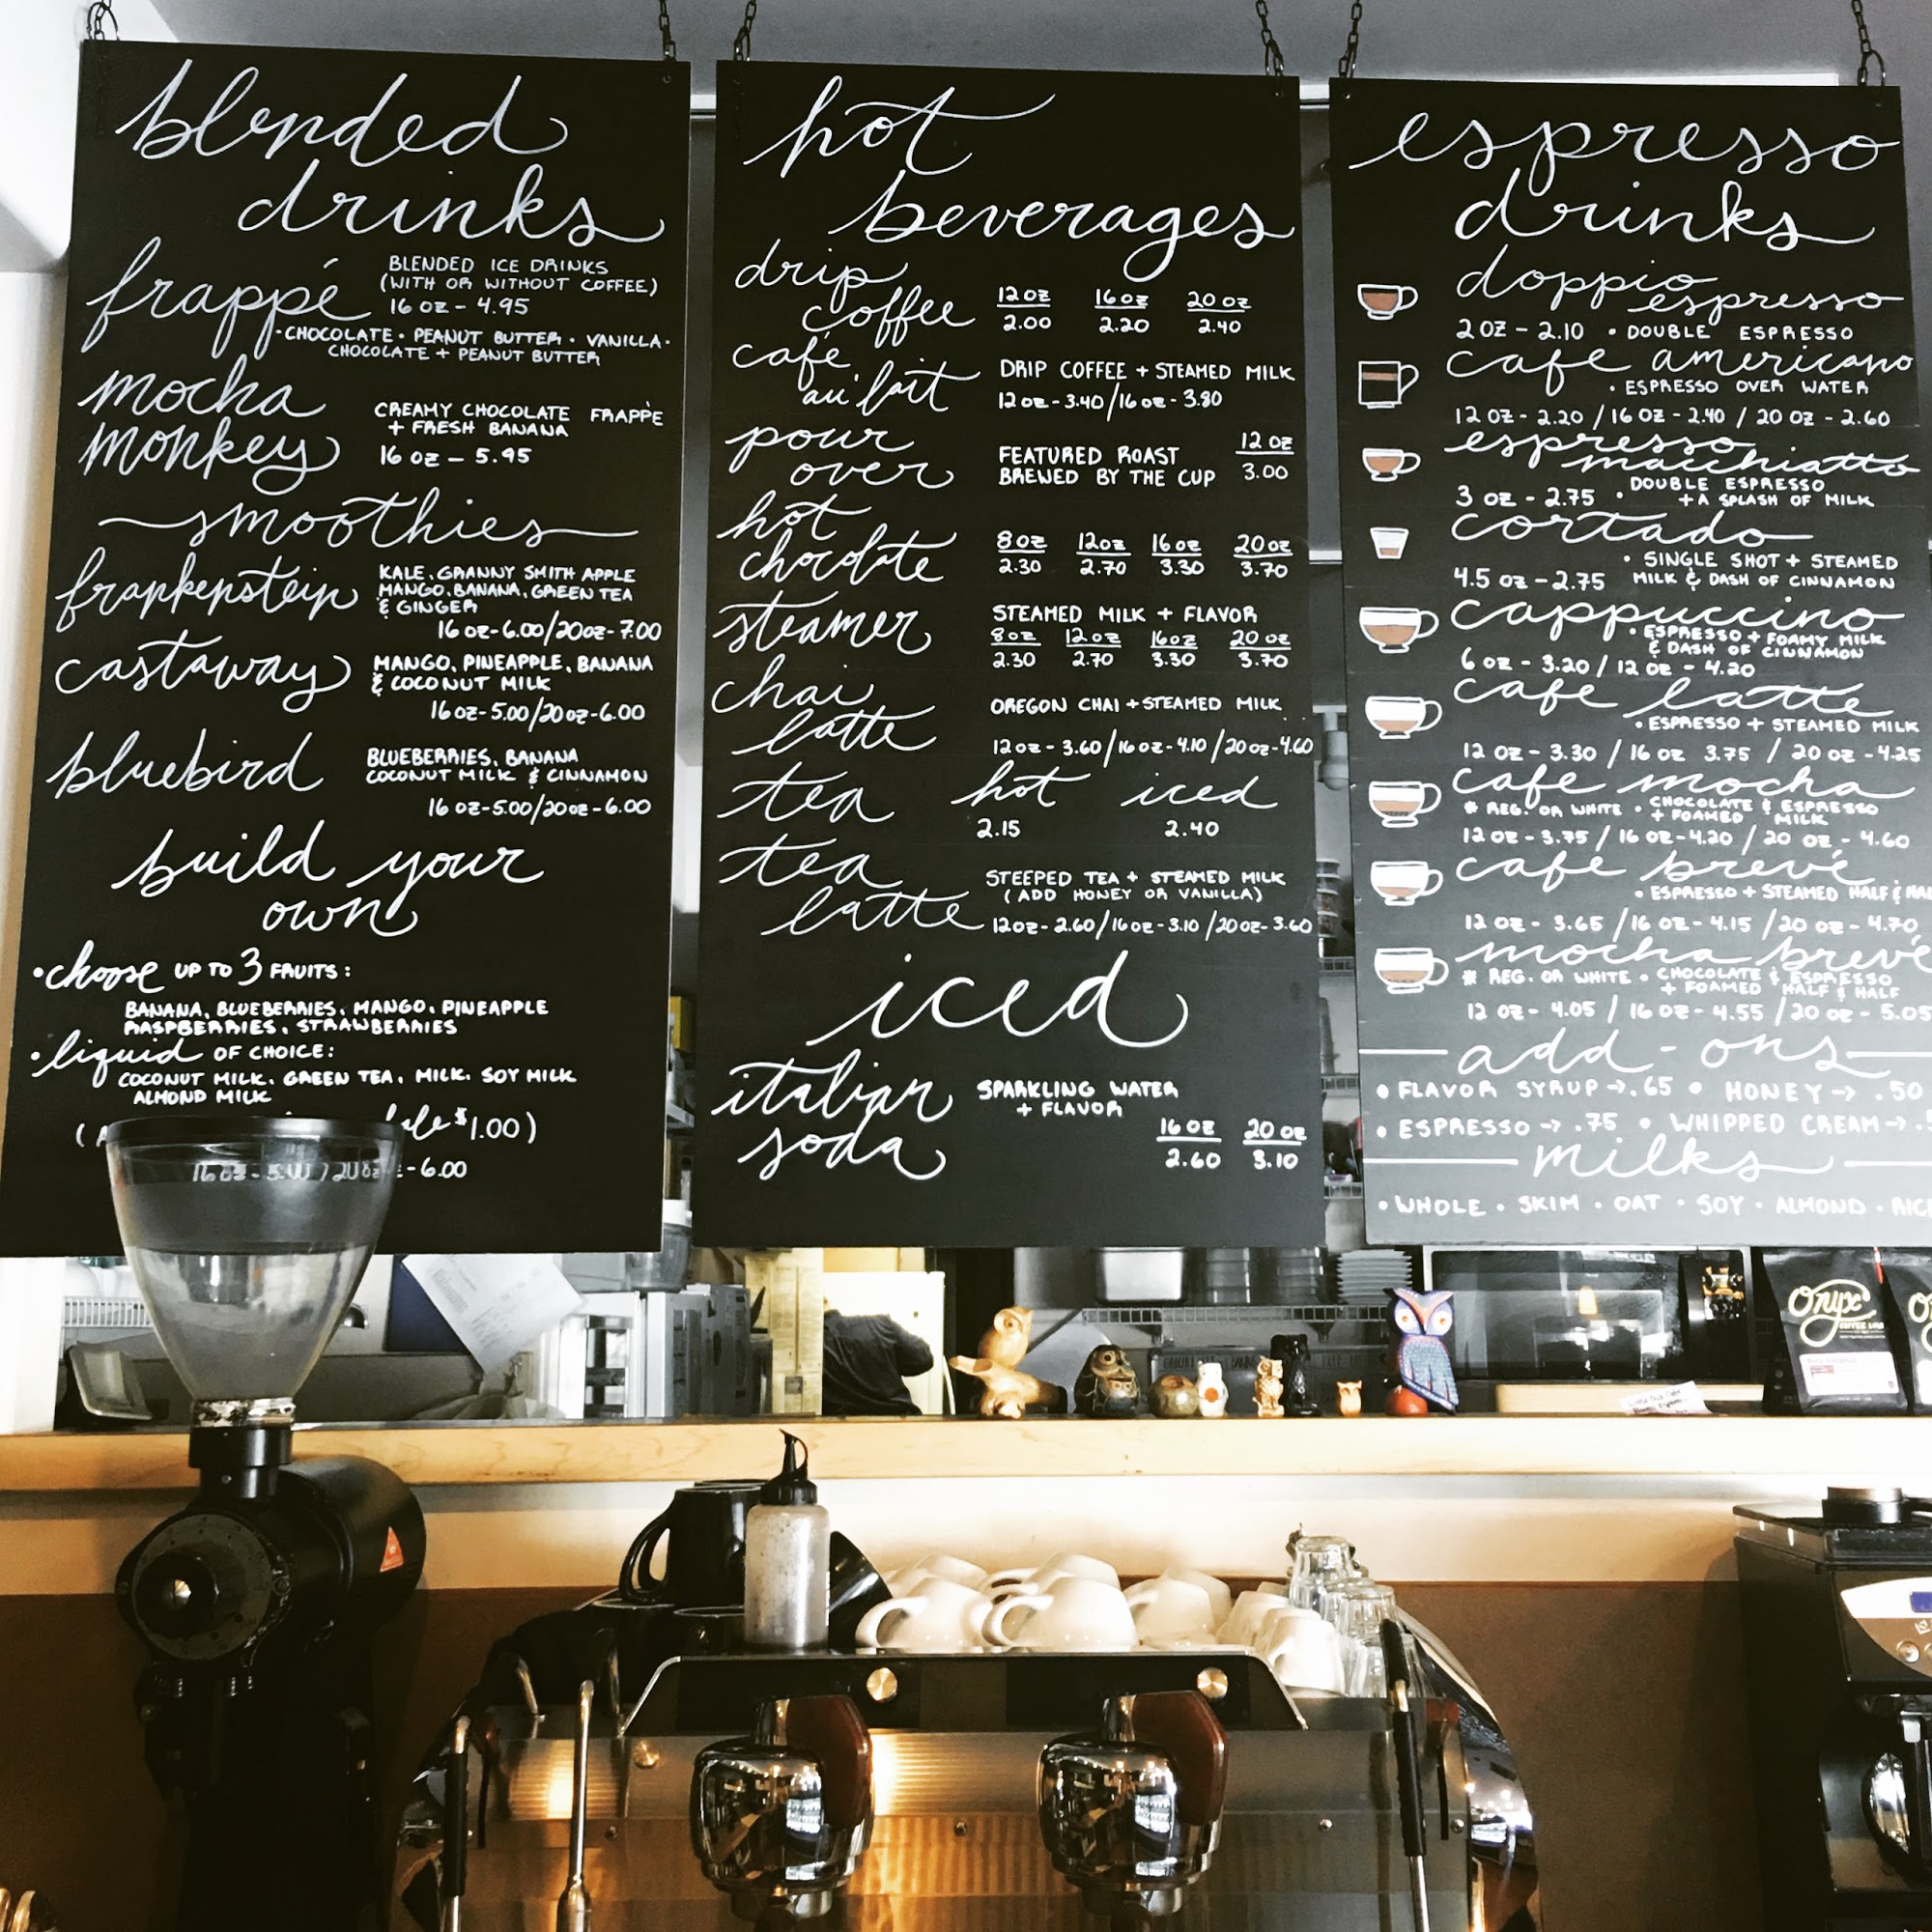 blended
drinks
frappé
BLENDED ICE DRINKS
(WITH OR WITHOUT COFFEE)
16 OZ - 4.95
·CHOCOLATE · PEANUT BUTTER · VANILLA·
CHOCOLATE + PEANUT BUTTER
mocha
monkey
CREAMY CHOCOLATE FRAPPÈ
+ FRESH BANANA
16 OZ - 5.95
smoothies
frankenstein
KALE, GRANNY SMITH APPLE
MANGO, BANANA, GREEN TEA
& GINGER
16 OZ-6.00/20OZ-7.00
castaway
MANGO, PINEAPPLE, BANANA
& COCONUT MILK
16 OZ-5.00/20 OZ-6.00
bluebird
BLUEBERRIES, BANANA
COCONUT MILK & CINNAMON
16 OZ-5.00/20OZ-6.00
build your
own
•choose UP TO 3 FRUITS:
BANANA, BLUEBERRIES, MANGO, PINEAPPLE
RASPBERRIES, STRAWBERRIES
•liquid OF CHOICE:
COCONUT MILK, GREEN TEA, MILK, SOY MILK
ALMOND MILK
$1.00)
16 OZ - 5.00 / 20 OZ - 6.00
hot
beverages
drip
coffee
12 OZ 16 OZ 20 OZ
2.00 2.20 2.40
café
au lait
DRIP COFFEE + STEAMED MILK
12 OZ - 3.40/16 OZ - 3.80
pour
over
FEATURED ROAST
BREWED BY THE CUP
12 OZ
3.00
hot
chocolate
8 OZ 12OZ 16 OZ 20OZ
2.30 2.70 3.30 3.70
steamer
STEAMED MILK + FLAVOR
8OZ 12OZ 16OZ 20 OZ
2.30 2.70 3.30 3.70
chai
latte
OREGON CHAI + STEAMED MILK
12 OZ - 3.60/16 OZ - 4.10/20 OZ - 4.60
tea
hot iced
2.15 2.40
tea
latte
STEEPED TEA + STEAMED MILK
(ADD HONEY OR VANILLA)
12OZ - 2.60/16 OZ - 3.10/20 OZ - 3.60
iced
italian
soda
SPARKLING WATER
+ FLAVOR
16 OZ 20 OZ
2.60 3.10
espresso
drinks
doppio
espresso
2 OZ - 2.10 • DOUBLE ESPRESSO
cafe americano
• ESPRESSO OVER WATER
12 OZ - 2.20 / 16 OZ - 2.40 / 20 OZ - 2.60
espresso
macchiatto
3 OZ - 2.75 • DOUBLE ESPRESSO
+ A SPLASH OF MILK
cortado
• SINGLE SHOT + STEAMED
4.5 OZ - 2.75 MILK & DASH OF CINNAMON
cappuccino
• ESPRESSO + FOAMY MILK
& DASH OF CINNAMON
6 OZ - 3.20 / 12 OZ - 4.20
cafe latte
• ESPRESSO + STEAMED MILK
12 OZ - 3.30 / 16 OZ 3.75 / 20 OZ - 4.25
cafe mocha
* REG. OR WHITE • CHOCOLATE & ESPRESSO
+ FOAMED MILK
12 OZ - 3.75 / 16 OZ - 4.20 / 20 OZ - 4.60
cafe brevé
• ESPRESSO + STEAMED HALF &
12 OZ - 3.65 / 16 OZ - 4.15 / 20 OZ - 4.70
mocha brevé
* REG. OR WHITE • CHOCOLATE & ESPRESSO
+ FOAMED HALF & HALF
12 OZ - 4.05 / 16 OZ - 4.55 / 20 OZ - 5.05
add-ons
• FLAVOR SYRUP → .65 • HONEY → .50
• ESPRESSO → .75 • WHIPPED CREAM →
milks
• WHOLE • SKIM • OAT • SOY • ALMOND •
Onyx
COFFEE LAB